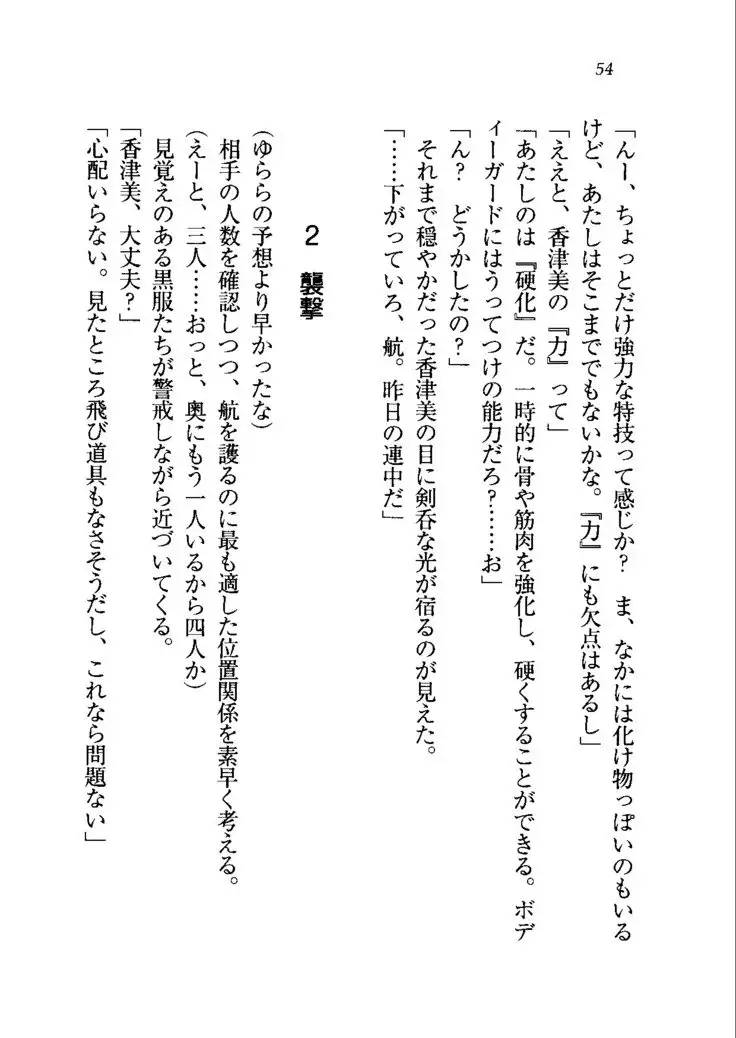 54
「んー、ちょっとだけ強力な特技って感じか?　ま、なかには化け物っぽいのもいる
けど、あたしはそこまででもないかな。『力』にも欠点はあるし」
「ええと、香津美の『力』って」
「あたしのは『硬化』だ。一時的に骨や筋肉を強化し、硬くすることができる。ボデ
ィーガードにはうってつけの能力だろ?……お」
「ん?　どうかしたの?」
それまで穏やかだった香津美の目に剣呑な光が宿るのが見えた。
「……下がっていろ、航。昨日の連中だ」
2　襲撃
(ゆららの予想より早かったな)
相手の人数を確認しつつ、航を護るのに最も適した位置関係を素早く考える。
(えーと、三人……おっと、奥にもう一人いるから四人か)
見覚えのある黒服たちが警戒しながら近づいてくる。
「香津美、大丈夫?」
「心配いらない。見たところ飛び道具もなさそうだし、これなら問題ない」